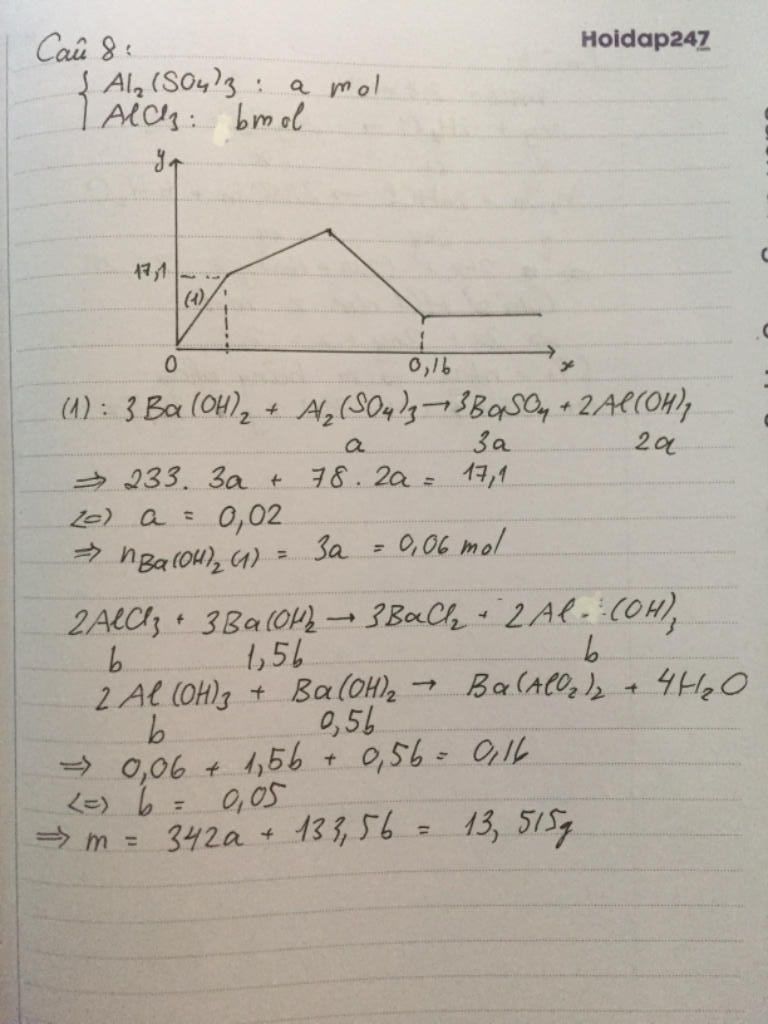 Hoidap247
Câu 8:
{ Al₂(SO₄)₃ : a mol
AlCl₃ : b mol
y
17,1
(1)
0
0,16
x
(1): 3Ba(OH)₂ + Al₂(SO₄)₃ → 3BaSO₄ + 2Al(OH)₃
a 3a 2a
=> 233. 3a + 78. 2a = 17,1
<=> a = 0,02
=> nBa(OH)₂(1) = 3a = 0,06 mol
2AlCl₃ + 3Ba(OH)₂ → 3BaCl₂ + 2Al(OH)₃
b 1,5b b
2Al(OH)₃ + Ba(OH)₂ → Ba(AlO₂)₂ + 4H₂O
b 0,5b
=> 0,06 + 1,5b + 0,5b = 0,16
<=> b = 0,05
=> m = 342a + 133,5b = 13,515g